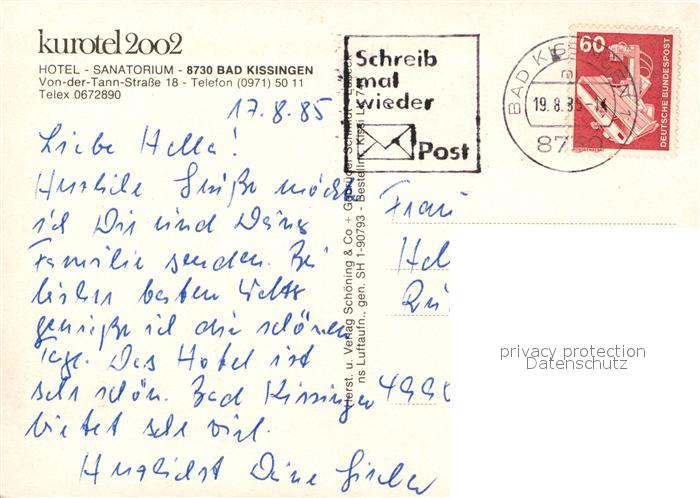 kurotel 2002
HOTEL - SANATORIUM - 8730 BAD KISSINGEN
Von-der-Tann-Straße 18 - Telefon (0971) 50 11
Telex 0672890
17.8.85
Liebe Hella!
Herzliche Grüße möchte
ich Dir und Deiner
Familie senden. Bei
besten
genieße ich die schönen
Tage. Das Hotel ist
sehr schön. Bad Kissingen
bietet sehr viel.
Herzlichst Deine
Schreib
mal
wieder
Post
BAD KISSINGEN 1
19.8.85-14
873
60
DEUTSCHE BUNDESPOST
Herst. u. Verlag Schöning & Co + Gebrüder Schmidt
ns Luftaufn., gen. SH 1-90793 - Bestellnr. Kissi L
Frau
Hel
4990
privacy protection
Datenschutz